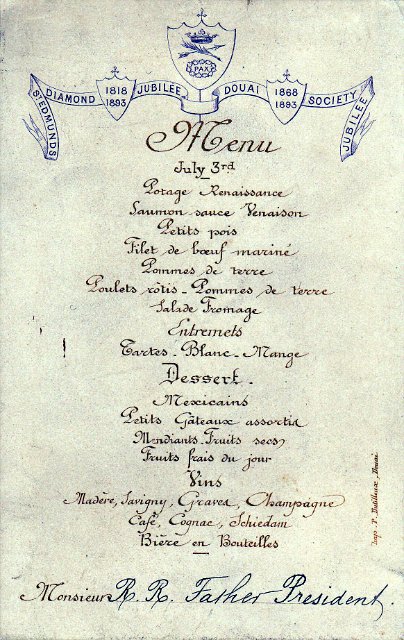 PAX
DIAMOND JUBILEE DOUAI SOCIETY
ST EDMUNDS
1818
1893
1868
1893
JUBILEE
Menu
July 3rd
Potage Renaissance
Saumon sauce Venaison
Petits pois
Filet de bœuf mariné
Pommes de terre
Poulets rôtis - Pommes de terre
Salade Fromage
Entremets
Tartes - Blanc - Mange
Dessert -
Mexicains
Petits Gâteaux assortis
Mendiants Fruits secs
Fruits frais du jour
Vins
Madère, Savigny, Graves, Champagne
Café, Cognac, Schiedam
Bière en Bouteilles
Monsieur R. R. Father President.
Imp. Douai